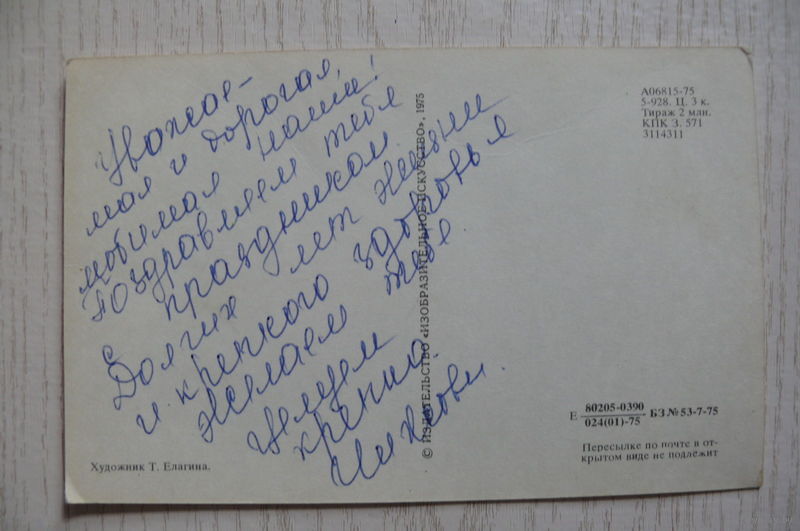 Уважае-
мая и дорогая,
любимая наша!
Поздравляем тебя
с праздником.
Долгих лет жизни
и крепкого здоровья
желаем тебе.
Целуем
крепко.
© ИЗДАТЕЛЬСТВО «ИЗОБРАЗИТЕЛЬНОЕ ИСКУССТВО», 1975
А06815-75
5-928. Ц. 3 к.
Тираж 2 млн.
КПК З. 571
3114311
Е 80205-0390
024(01)-75 БЗ № 53-7-75
Пересылке по почте в от-
крытом виде не подлежит
Художник Т. Елагина.